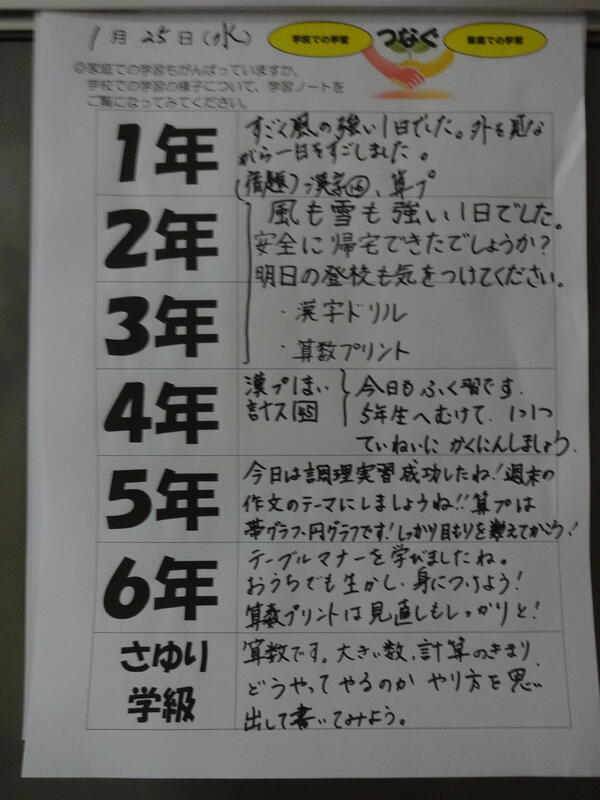 1月25日(水)
学校での学習 つなぐ 家庭での学習
◎家庭での学習もがんばっていますか。
学校での学習の様子について、学習ノートを
ご覧になってみてください。
1年
すごく風の強い1日でした。外を見な
がら一日をすごしました。
(宿題)漢字⑯、算プ
2年
風も雪も強い1日でした。
安全に帰宅できたでしょうか?
明日の登校も気をつけてください。
3年
・漢字ドリル
・算数プリント
4年
漢プ1まい
計ス45
今日もふく習です.
5年生へむけて、1つ1つ
ていねいにかくにんしましょう.
5年
今日は調理実習成功したね!週末の
作文のテーマにしましょうね!!算プは
帯グラフ、円グラフです!しっかり目もりを数えてかこう!
6年
テーブルマナーを学びましたね。
おうちでも生かし、身につけよう!
算数プリントは見直しもしっかりと!
さゆり
学級
算数です。大きい数、計算のきまり、
どうやってやるのかやり方を思い
出して書いてみよう。